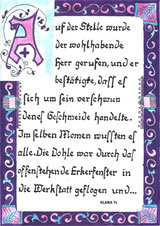 Auf der Stelle wurde
der wohlhabende
Herr gerufen, und er
bestätigte, dass es
sich um sein verschwun
denes Geschmeide handelte.
Im selben Momen wussten es
alle. Die Dohle war durch das
offenstehende Erkerfenster in
die Werkstatt geflogen und...
KLARA 7c